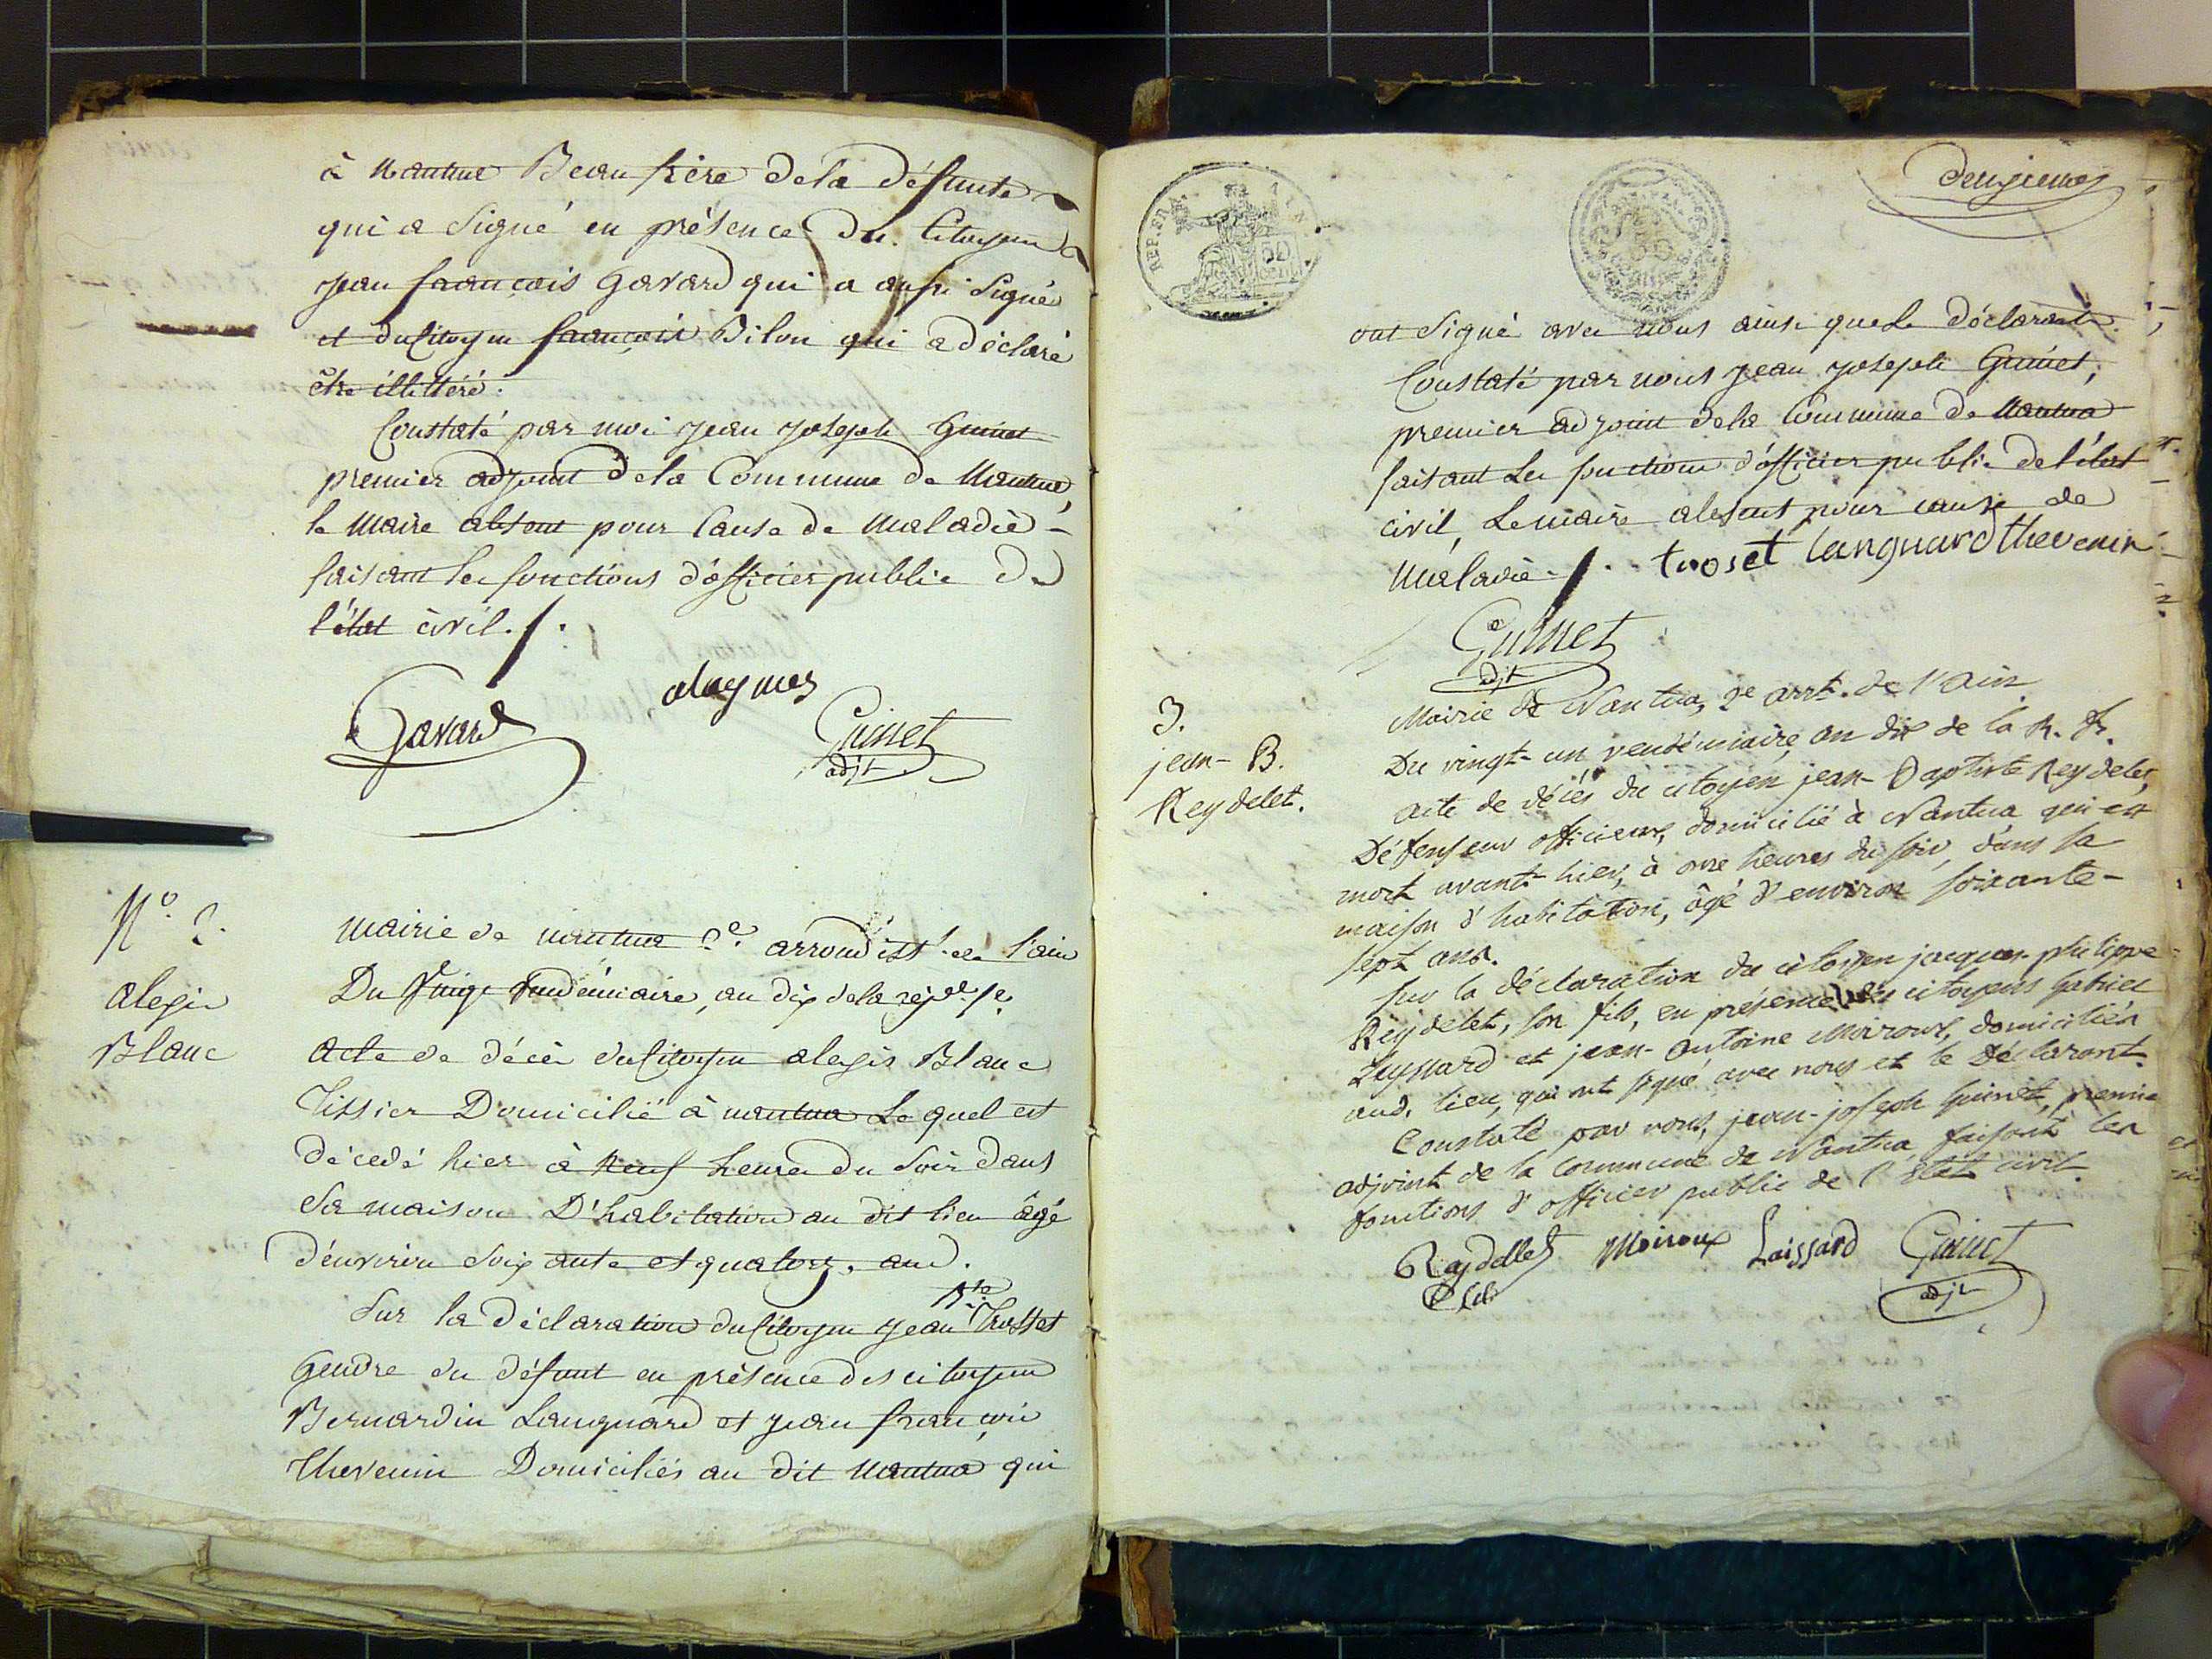 à nantua Beau frère dela défunte
qui a signé en présence du Citoyen
jean françois Gavard qui a aussi signé
et du Citoyen françois Bilon qui a déclaré
être illitéré.
Constaté par moi jean joseph Guinet
premier adjoint dela Commune de Nantua,
le Maire absent pour Cause de Maladie -
faisant les fonctions d'officier public de
l'état civil ./.
Gavard
Guinet
adjt
N.º 2.
alexis
Blanc
mairie de nantua 2.e arrondisst. de l'ain
Du vingt vendémiaire, an dix dela répe. fe.
acte de décès du Citoyen alexis Blanc
Tissier Domicilié à nantua Le quel est
décedé hier à Neuf heures du soir dans
Sa maison D'habitation au dit lieu âgé
d'environ soixante et quatorze ans.
Sur la déclaration du Citoyen jean Bte Trosset
Gendre du défunt en présence des citoyens
Bernardin Languard et jean françois
Thevenin Domiciliés au dit Nantua qui
REP. FRA.
50
cent
deuxieme
ont signé avec nous ainsi que le déclarant.
Constaté par nous jean joseph Guinet,
premier adjoint dela Commune de Nantua
faisant les fonctions d'officier public de l'état
civil, Le maire absent pour cause de
Maladie ./. troset Languard thevenin
Guinet
adjt
3.
jean-B.
Reydelet.
Mairie de Nantua, 2e arrt. de l'ain
Du vingt-un vendémiaire, an dix de la R. fr.
acte de décès du citoyen jean-Baptiste Reydelet,
Défenseur officieux, domicilié à Nantua qui est
mort avant-hier, à onze heures du soir, dans sa
maison d'habitation, âgé d'environ soixante-
sept ans.
sur la déclaration du citoyen jacques-philippe
Reydelet, son fils, en présence des citoyens Gabriel
Leyssard et jean-Antoine Moiroux, domiciliés
aud. lieu, qui ont signé avec nous et le Déclarant.
Constaté par nous, jean-joseph Guinet, premier
adjoint de la Commune de Nantua faisant les
fonctions d'officier public de l'état civil.
Reydellet Moiroux Laissard Guinet
fils adjt